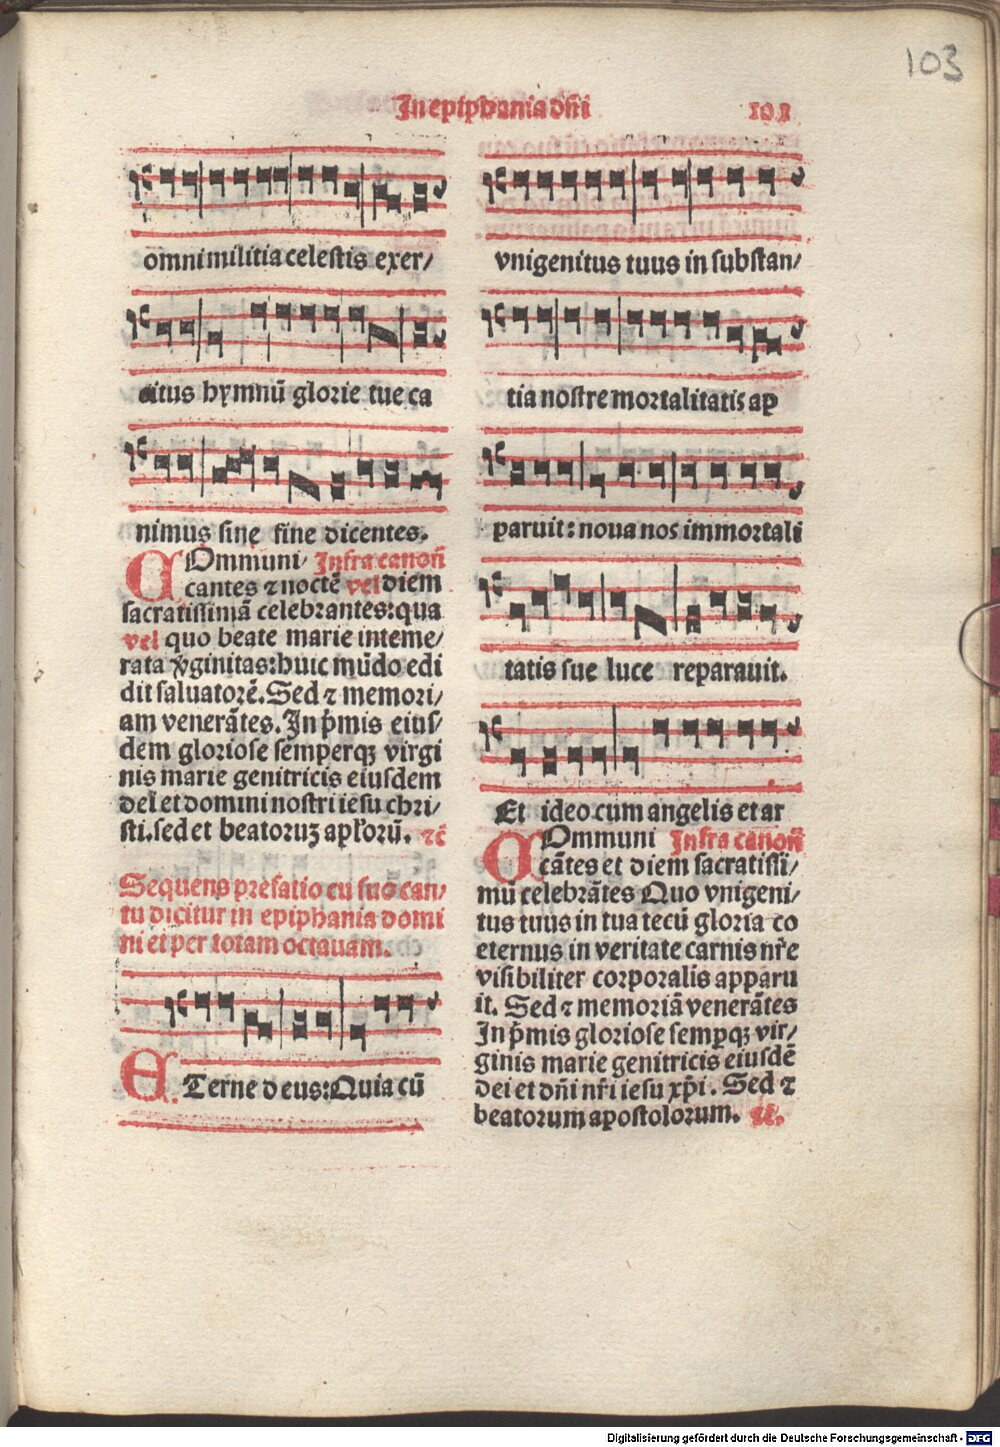 103
In epiphania dñi 101
omni militia celestis exer/
citus hymnũ glorie tue ca
nimus sine fine dicentes.
COmmuni/ Infra canoñ
cantes ⁊ noctẽ vel diem
sacratissimã celebrantes: qua
vel quo beate marie inteme/
rata v̾ginitas: huic mũdo edi
dit saluatorẽ. Sed ⁊ memori/
am venerãtes. In p̃mis eius/
dem gloriose semperqꝫ virgi
nis marie genitricis eiusdem
dei et domini nostri iesu chri/
sti. sed et beatoruꝫ apl̕orũ. ⁊c̃
Sequens prefatio cũ suo can/
tu dicitur in epiphania domi
ni et per totam octauam.
ETerne deus: Quia cũ
vnigenitus tuus in substan/
tia nostre mortalitatis ap
paruit: noua nos immortali
tatis sue luce reparauit.
Et ideo cum angelis et ar
COmmuni Infra canoñ
cãtes et diem sacratissi/
mũ celebrãtes Quo vnigeni/
tus tuus in tua tecũ gloria co
eternus in veritate carnis nr̃e
visibiliter corporalis apparu
it. Sed ⁊ memoriã venerãtes
In p̃mis gloriose semꝑqꝫ vir/
ginis marie genitricis eiusdẽ
dei et dñi nr̃i iesu xp̃i. Sed ⁊
beatorum apostolorum. ⁊c̃.
Digitalisierung gefördert durch die Deutsche Forschungsgemeinschaft - DFG